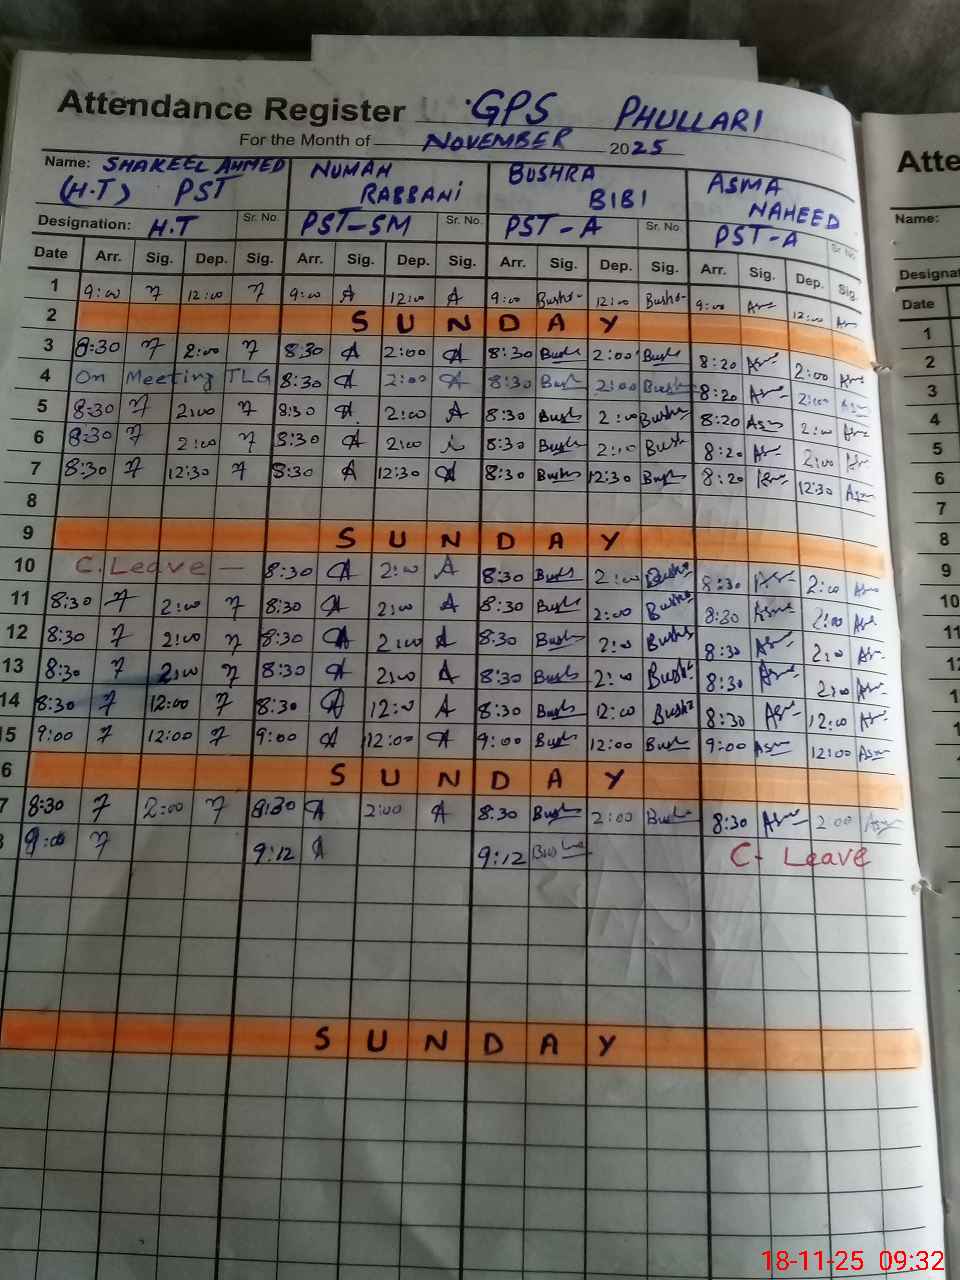 Attendance Register GPS PHULLARI
For the Month of NOVEMBER 2025
Name: SHAKEEL AHMED NUMAN BUSHRA ASMA
(H.T) PST RABBANI BIBI NAHEED
Designation: H.T Sr. No. PST-SM Sr. No. PST-A Sr. No. PST-A Sr. No.
Date Arr. Sig. Dep. Sig. Arr. Sig. Dep. Sig. Arr. Sig. Dep. Sig. Arr. Sig. Dep. Sig.
1 9:00 12:00 9:00 A 12:00 A 9:00 Bushr 12:00 Bushr 9:00 12:00
2 SUNDAY
3 8:30 2:00 8:30 A 2:00 A 8:30 Bush 2:00 Bush 8:20 Asm 2:00 Asm
4 On Meeting TLG 8:30 A 2:00 A 8:30 Bush 2:00 Bush 8:20 Asm 2:00 Asm
5 8:30 2:00 8:30 A 2:00 A 8:30 Bush 2:00 Bush 8:20 Asm 2:00 Asm
6 8:30 2:00 8:30 A 2:00 8:30 Bush 2:00 Bush 8:20 Asm 2:00 Asm
7 8:30 12:30 8:30 A 12:30 A 8:30 Bush 12:30 Bush 8:20 Asm 12:30 Asm
8
9 SUNDAY
10 C. Leave — 8:30 A 2:00 A 8:30 Bush 2:00 Bush 8:30 Asm 2:00 Asm
11 8:30 2:00 8:30 A 2:00 A 8:30 Bush 2:00 Bush 8:30 Asm 2:00 Asm
12 8:30 2:00 8:30 A 2:00 A 8:30 Bush 2:00 Bush 8:30 Asm 2:00 Asm
13 8:30 2:00 8:30 A 2:00 A 8:30 Bush 2:00 Bush 8:30 Asm 2:00 Asm
14 8:30 12:00 8:30 A 12:00 A 8:30 Bush 12:00 Bush 8:30 Asm 12:00 Asm
15 9:00 12:00 9:00 A 12:00 A 9:00 Bush 12:00 Bush 9:00 Asm 12:00 Asm
6 SUNDAY
7 8:30 2:00 8:30 A 2:00 A 8:30 Bush 2:00 Bush 8:30 Asm 2:00 Asm
9:00 9:12 A 9:12 Bush C. Leave
SUNDAY
Atte
Name:
Designat
Date
1
2
3
4
5
6
7
8
9
10
11
12
13
18-11-25 09:32